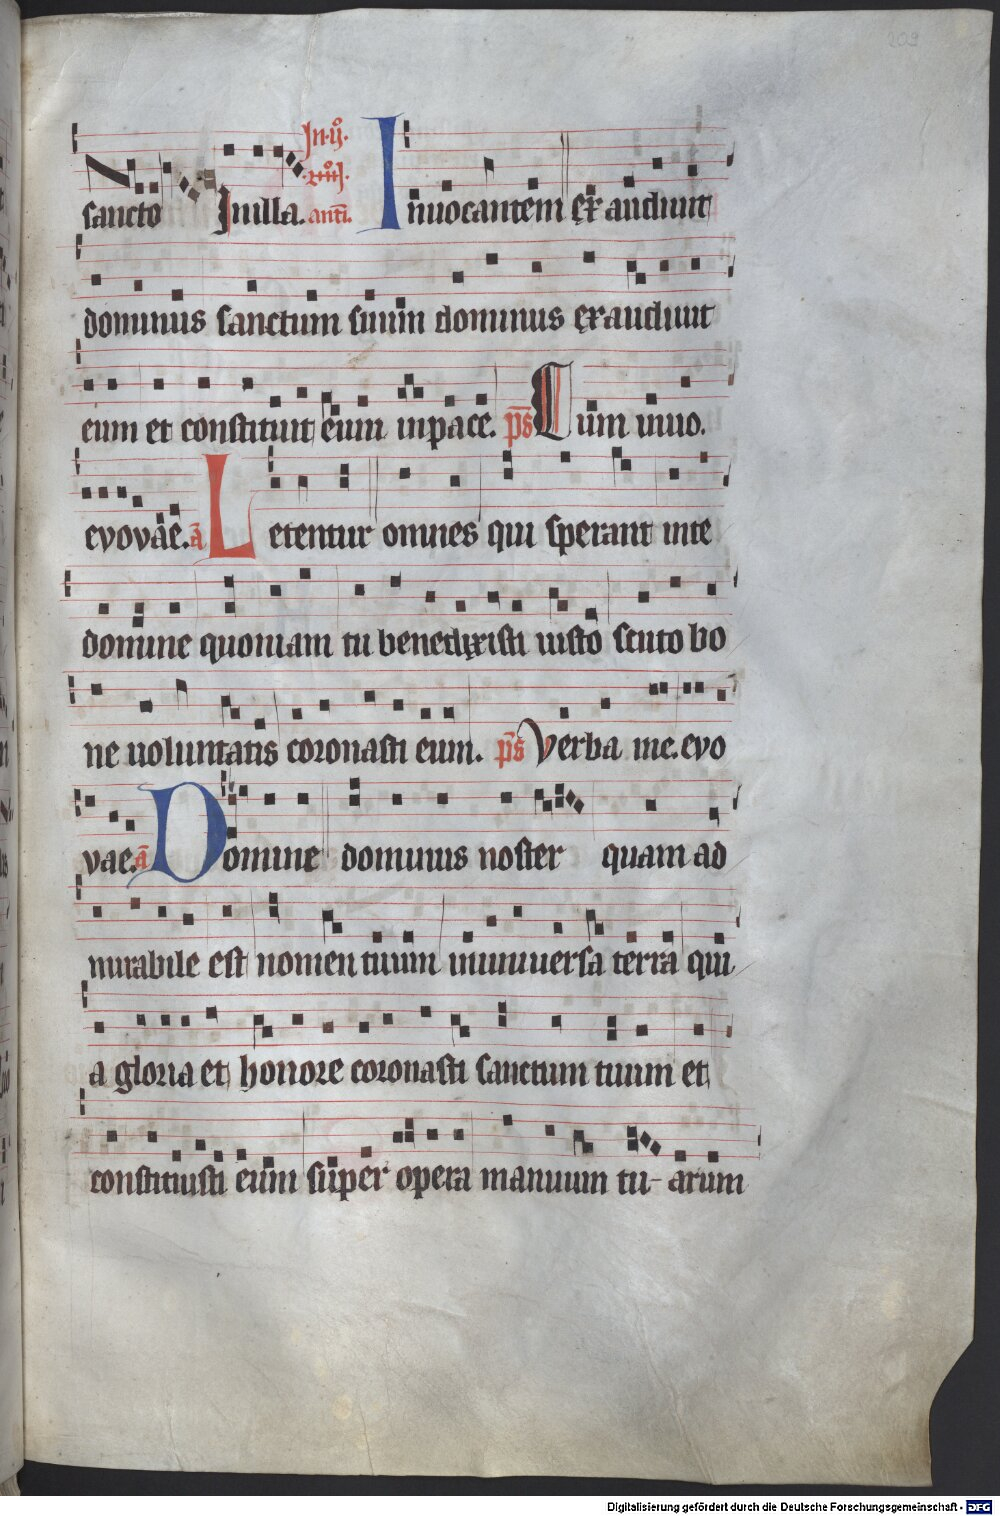 209
In ij⁰
sancto In illa. xiiij. anti. Inuocantem exaudiuit
dominus sanctum suum dominus exaudiuit
eum et constituit eum in pace. ps̄ Cum inuo.
evovae. a Letentur omnes qui sperant in te
domine quoniam tu benedixisti iusto scuto bo
ne uoluntatis coronasti eum. ps̄ Verba me. evo
vae. a Domine dominus noster quam ad
mirabile est nomen tuum in uniuersa terra qui
a gloria et honore coronasti sanctum tuum et
constituisti eum super opera manuum tu-arum
Digitalisierung gefördert durch die Deutsche Forschungsgemeinschaft - DFG